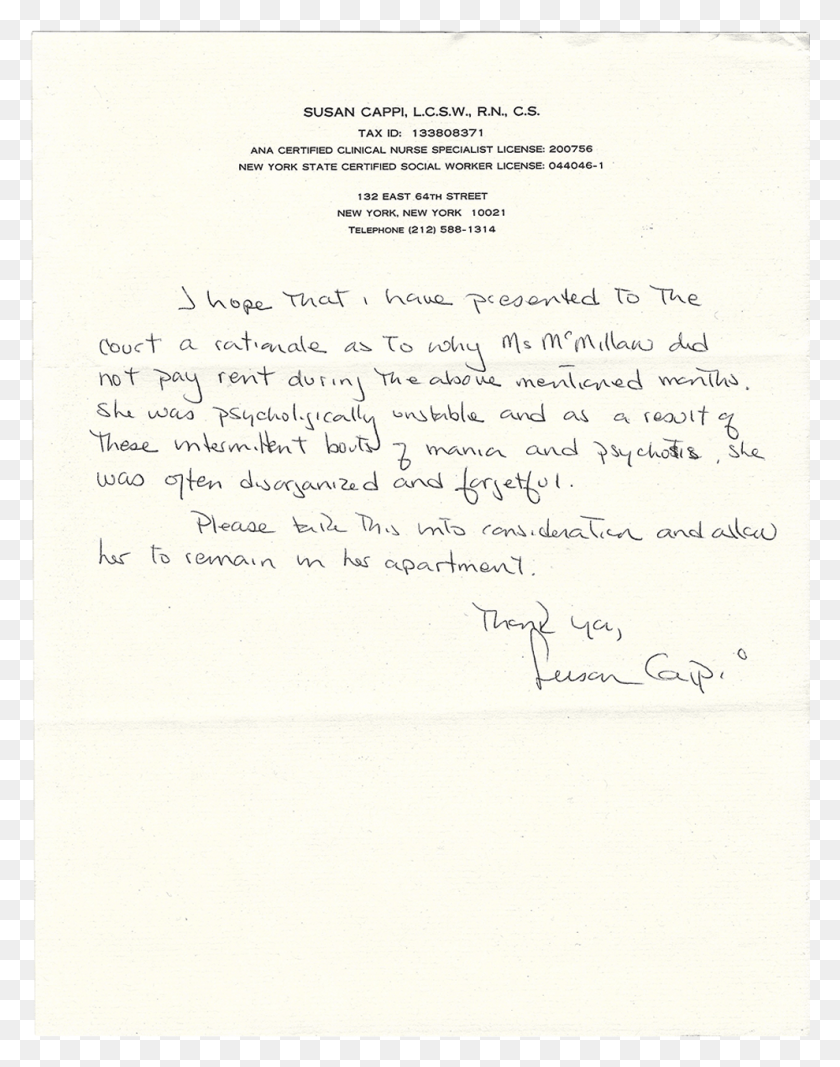 SUSAN CAPPI, L.C.S.W., R.N., C.S.
TAX ID: 133808371
ANA CERTIFIED CLINICAL NURSE SPECIALIST LICENSE: 200756
NEW YORK STATE CERTIFIED SOCIAL WORKER LICENSE: 044046-1
132 EAST 64TH STREET
NEW YORK, NEW YORK 10021
TELEPHONE (212) 588-1314
I hope that i have presented to the
court a rationale as to why Ms McMillan did
not pay rent during the above mentioned months.
She was psychologically unstable and as a result of
these intermittent bouts of mania and psychosis, she
was often disorganized and forgetful.
Please take this into consideration and allow
her to remain in her apartment.
Thank you,
Susan Cappi